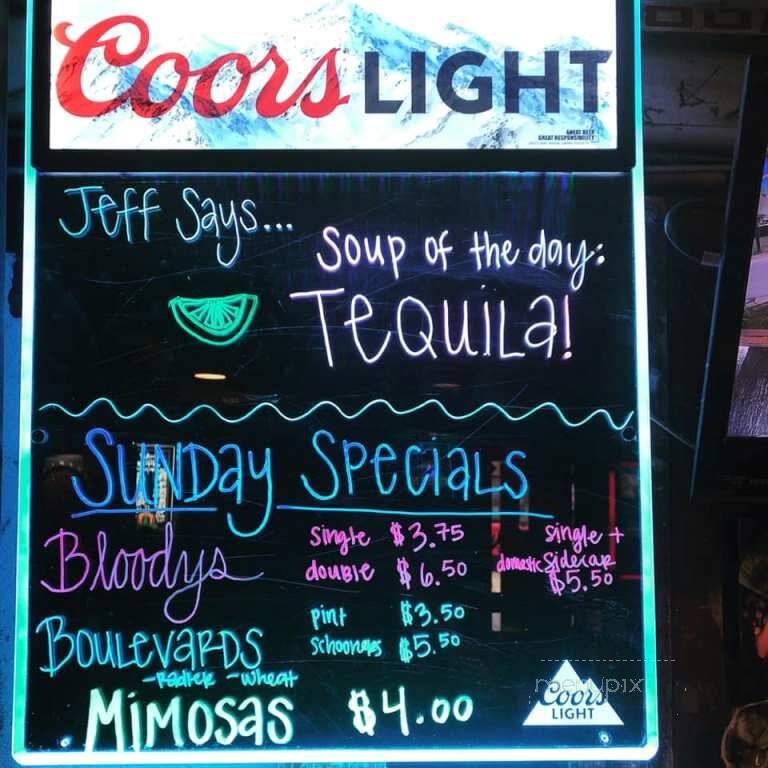 Coors LIGHT
GREAT BEER
GREAT RESPONSIBILITY
Jeff Says...
Soup of the day:
TeQuiLa!
SUNDay SpeciaLs
Bloodys
single $3.75
double $6.50
single +
domestic Sidecar
$5.50
BOULEVARDS
-Radler -Wheat
pint $3.50
schooners $5.50
MiMOSAS $4.00
menupix
Coors
LIGHT